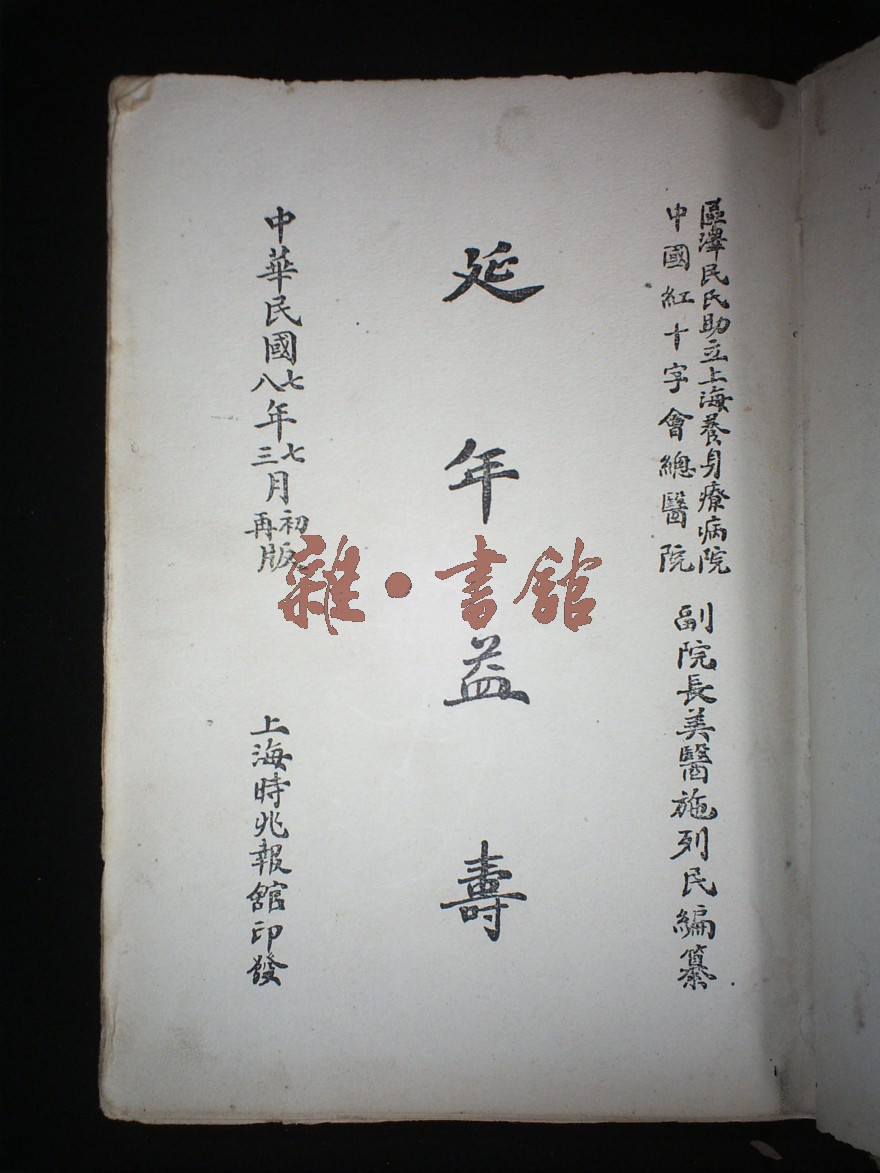 區澤民氏助立上海養身療病院
中國紅十字會總醫院
副院長美醫施列民編纂
延年益壽
中華民國七八年七三月初再版
上海時兆報館印發
雜·書館